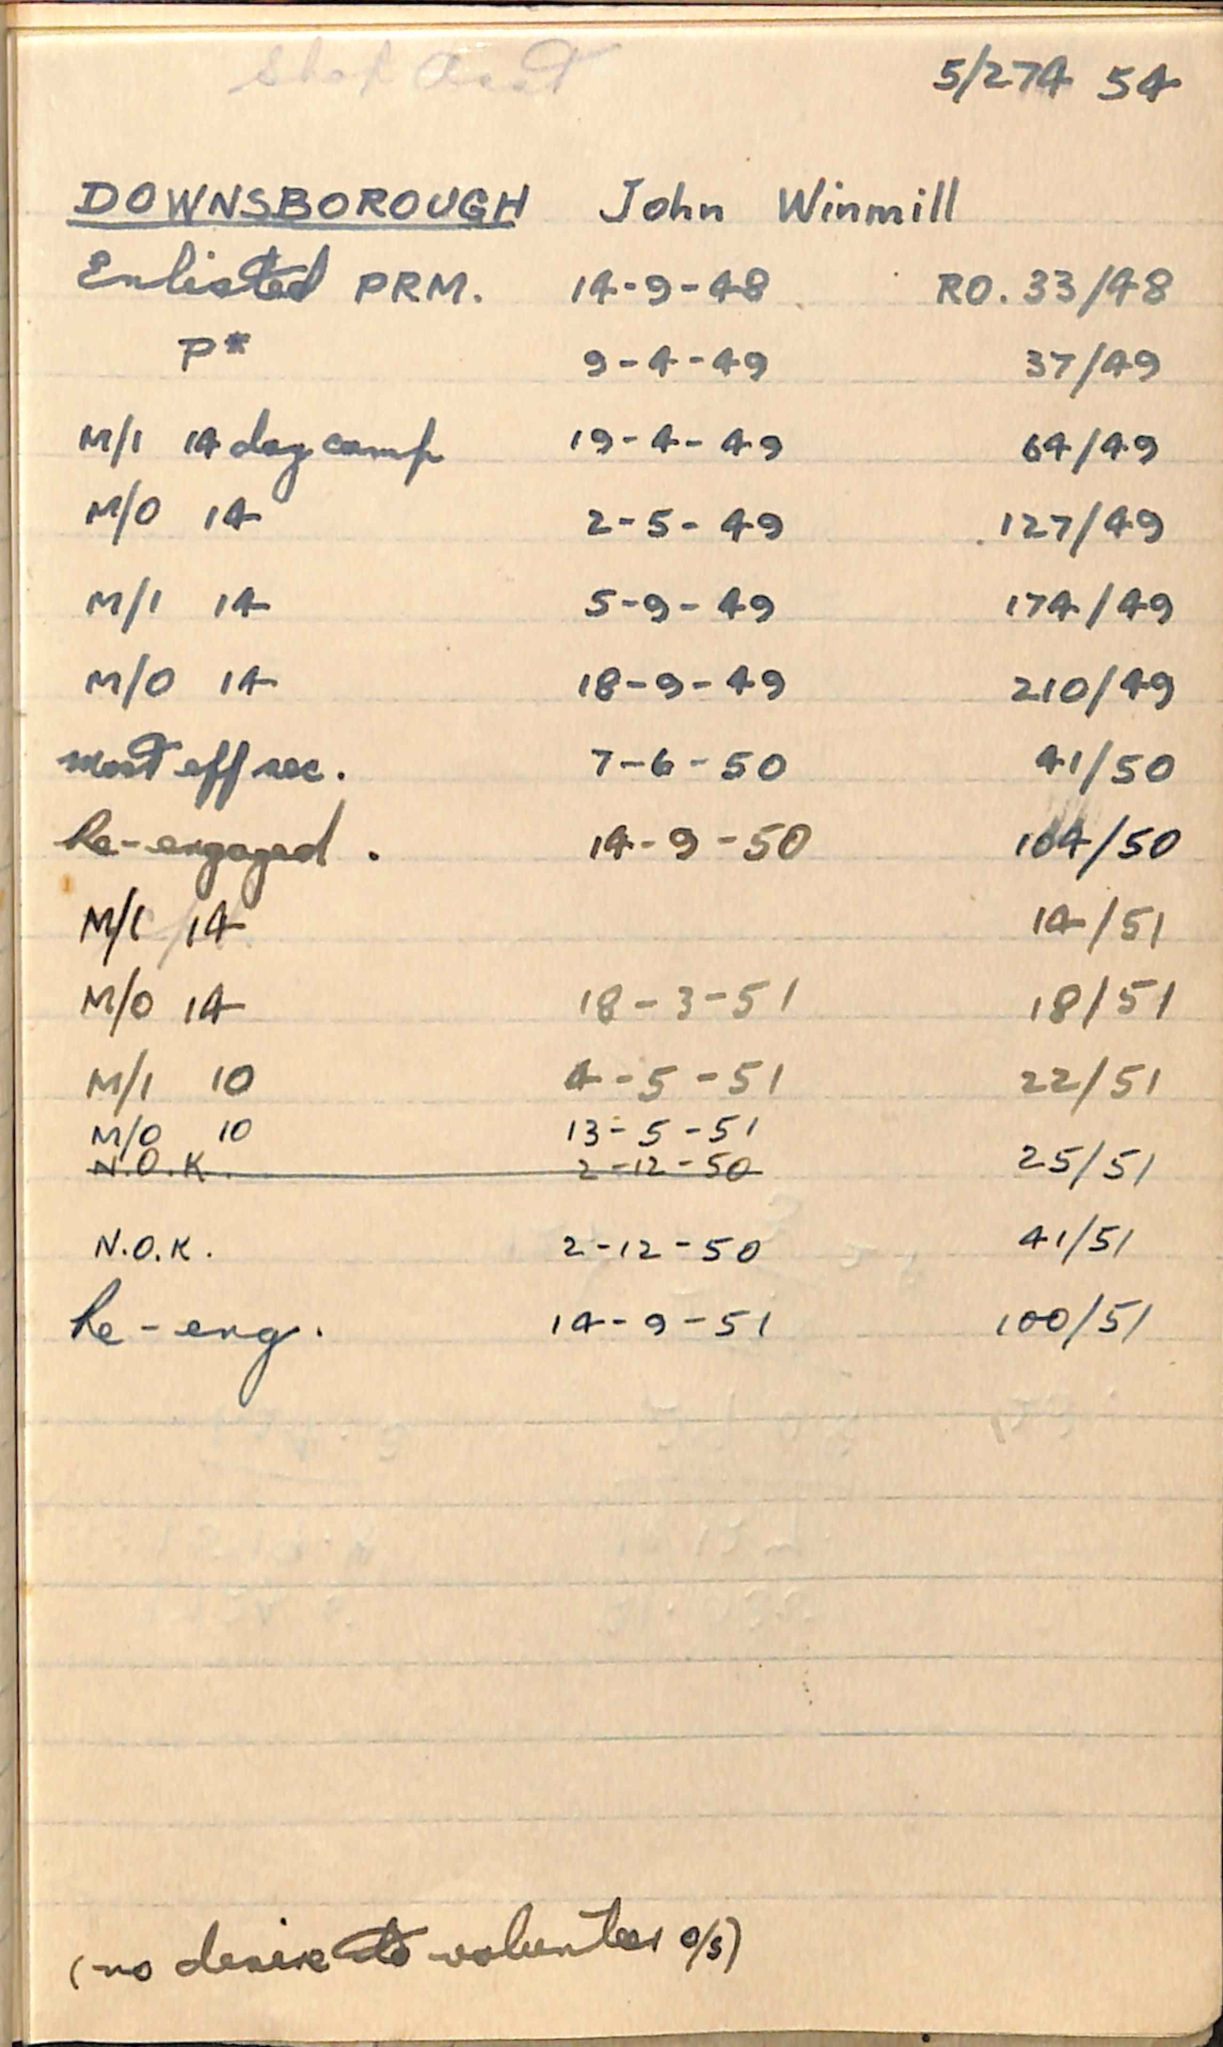 5/274 54
DOWNSBOROUGH John Winmill
Enlisted PRM. 14-9-48 RO. 33/48
P* 9-4-49 37/49
M/I 14 day camp 19-4-49 64/49
M/O 14 2-5-49 127/49
M/I 14 5-9-49 174/49
M/O 14 18-9-49 210/49
most eff rec. 7-6-50 41/50
Re-engaged. 14-9-50 104/50
M/I 14 14/51
M/O 14 18-3-51 18/51
M/I 10 4-5-51 22/51
M/O 10 13-5-51
N.O.K. 2-12-50 25/51
N.O.K. 2-12-50 41/51
Re-eng. 14-9-51 100/51
(no desire to volunteer o/s)